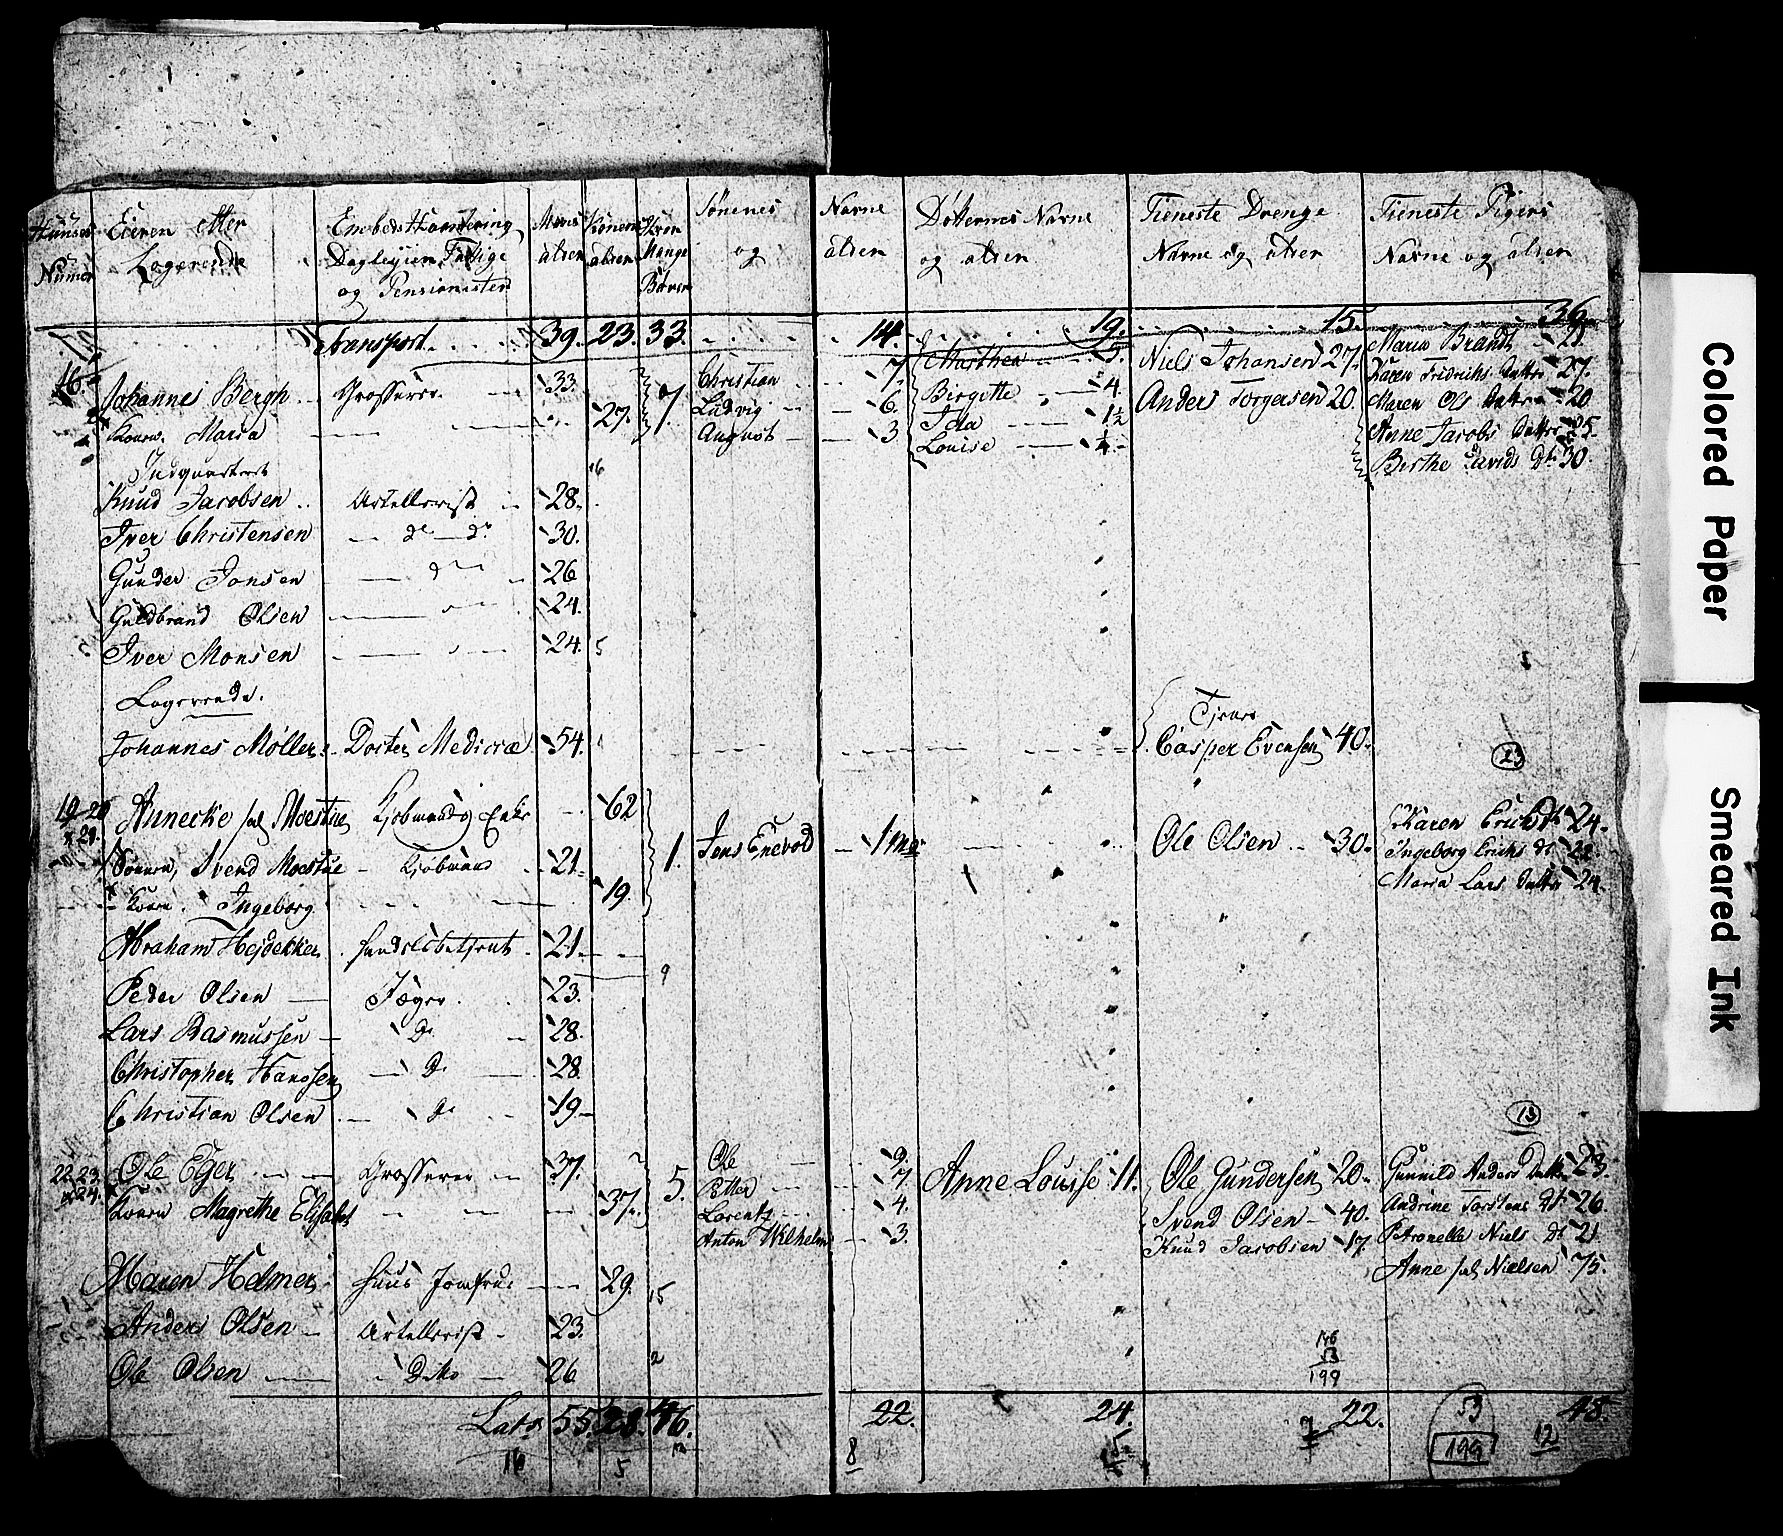 Huuses Numer | Eieren eller Logerende | Embeds Handtering Dagleyen Fattige og Pensionister | Mens alder | Konens alder | Hvor Mange Børn | Sønenes og | Navne alder | Døtternes Navne og alder | Tieneste Drenge Navne og alder | Tieneste Pigers Navne og alder
Transport 39. 23. 33. 14. 19. 15. 36.
Johannes Bergh Grosserer 33. 7. Christian 7. Marthea 5. Niels Johansen 27. Maren Brandt 21.
Ludvig 6. Birgitte 4. Anders Torgersen 20. Karen Fridrichs Datter 27.
Konen Maria 27. August 3. Ida 1½ Maren Ols Datter 20
Louise Anne Jacobs Datter 25.
Berthe Davids Dt 30.
Indquarteret 6
Knud Jacobsen Artellerist 28.
Iver Christensen do do 30.
Gunder Jonsen 26
Guldbrand Olsen 24.
Iver Monsen 24. 5
Logerende.
Tjener
Johannes Møller Docter Medicinæ 54. Casper Evensen 40.
23
19-20 Annecke sal Moestue Kjøbmands Enke 62 Karen Erichs Dt 24.
x 21. 1. Jens Enevold 1 Ole Olsen 30. Ingeborg Erichs Dt 22.
Sønnen, Svend Moestue Kjøbmand 21. Maria Lars Datter 24.
Kone Ingeborg 19.
Abraham Hejdekker Handelsbetjent 21.
9
Peder Olsen Jæger 23.
Lars Rasmussen Do 28.
Christopher Hansen Do 28.
Christian Olsen Do 19.
13
22.23. Ole Eger Grosserer 37. 5. Ole 9. Anne Louise 11. Ole Gundersen 20. Gunnild Anders Datter 23.
x 24. Petter 7.
Konen Magrethe Elisabet 37. Lorentz 4. Svend Olsen 40. Andrine Torstens Dt 26.
Anton Wilhelm 3. Knud Jacobsen 17. Petronelle Niels Dt 21
Maren Helmer Huus Jomfrue 29. 15 Anne sal Nielsen 75.
Anders Olsen Artellerist 23.
146
53
199
Ole Olsen Dito 26 2
Lats 55. 28. 46. 22. 24. 22. 53 48.
16 5 8 5 7 199 12
Colored Paper
Smeared Ink